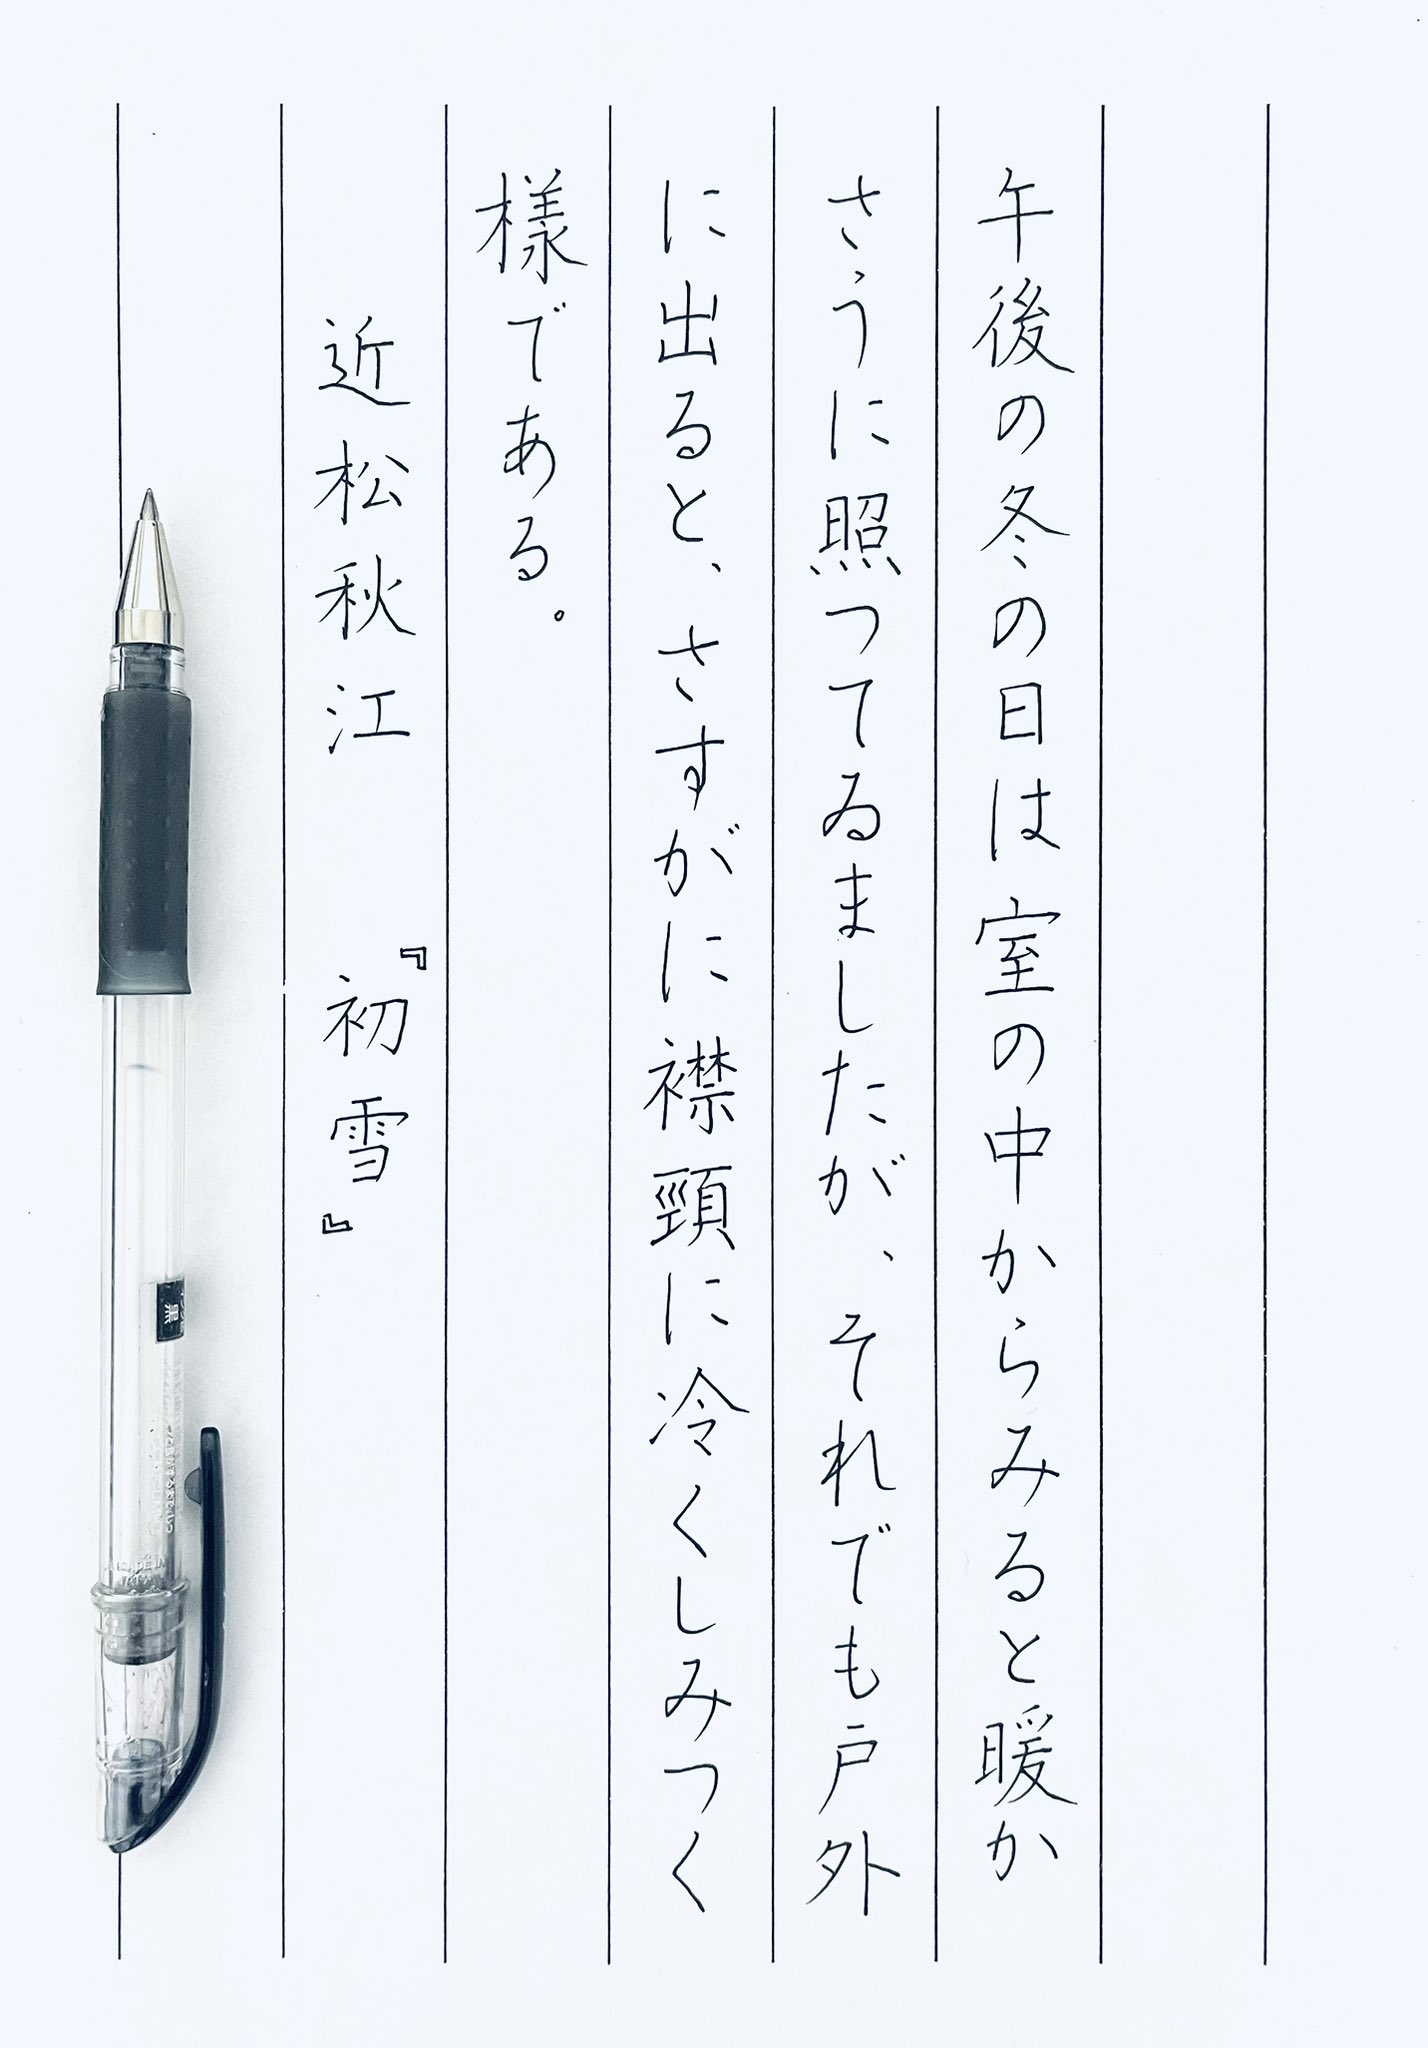 午後の冬の日は室の中からみると暖か
さうに照つてゐましたが、それでも戸外
に出ると、さすがに襟頸に冷くしみつく
様である。
近松秋江 『初雪』
黒